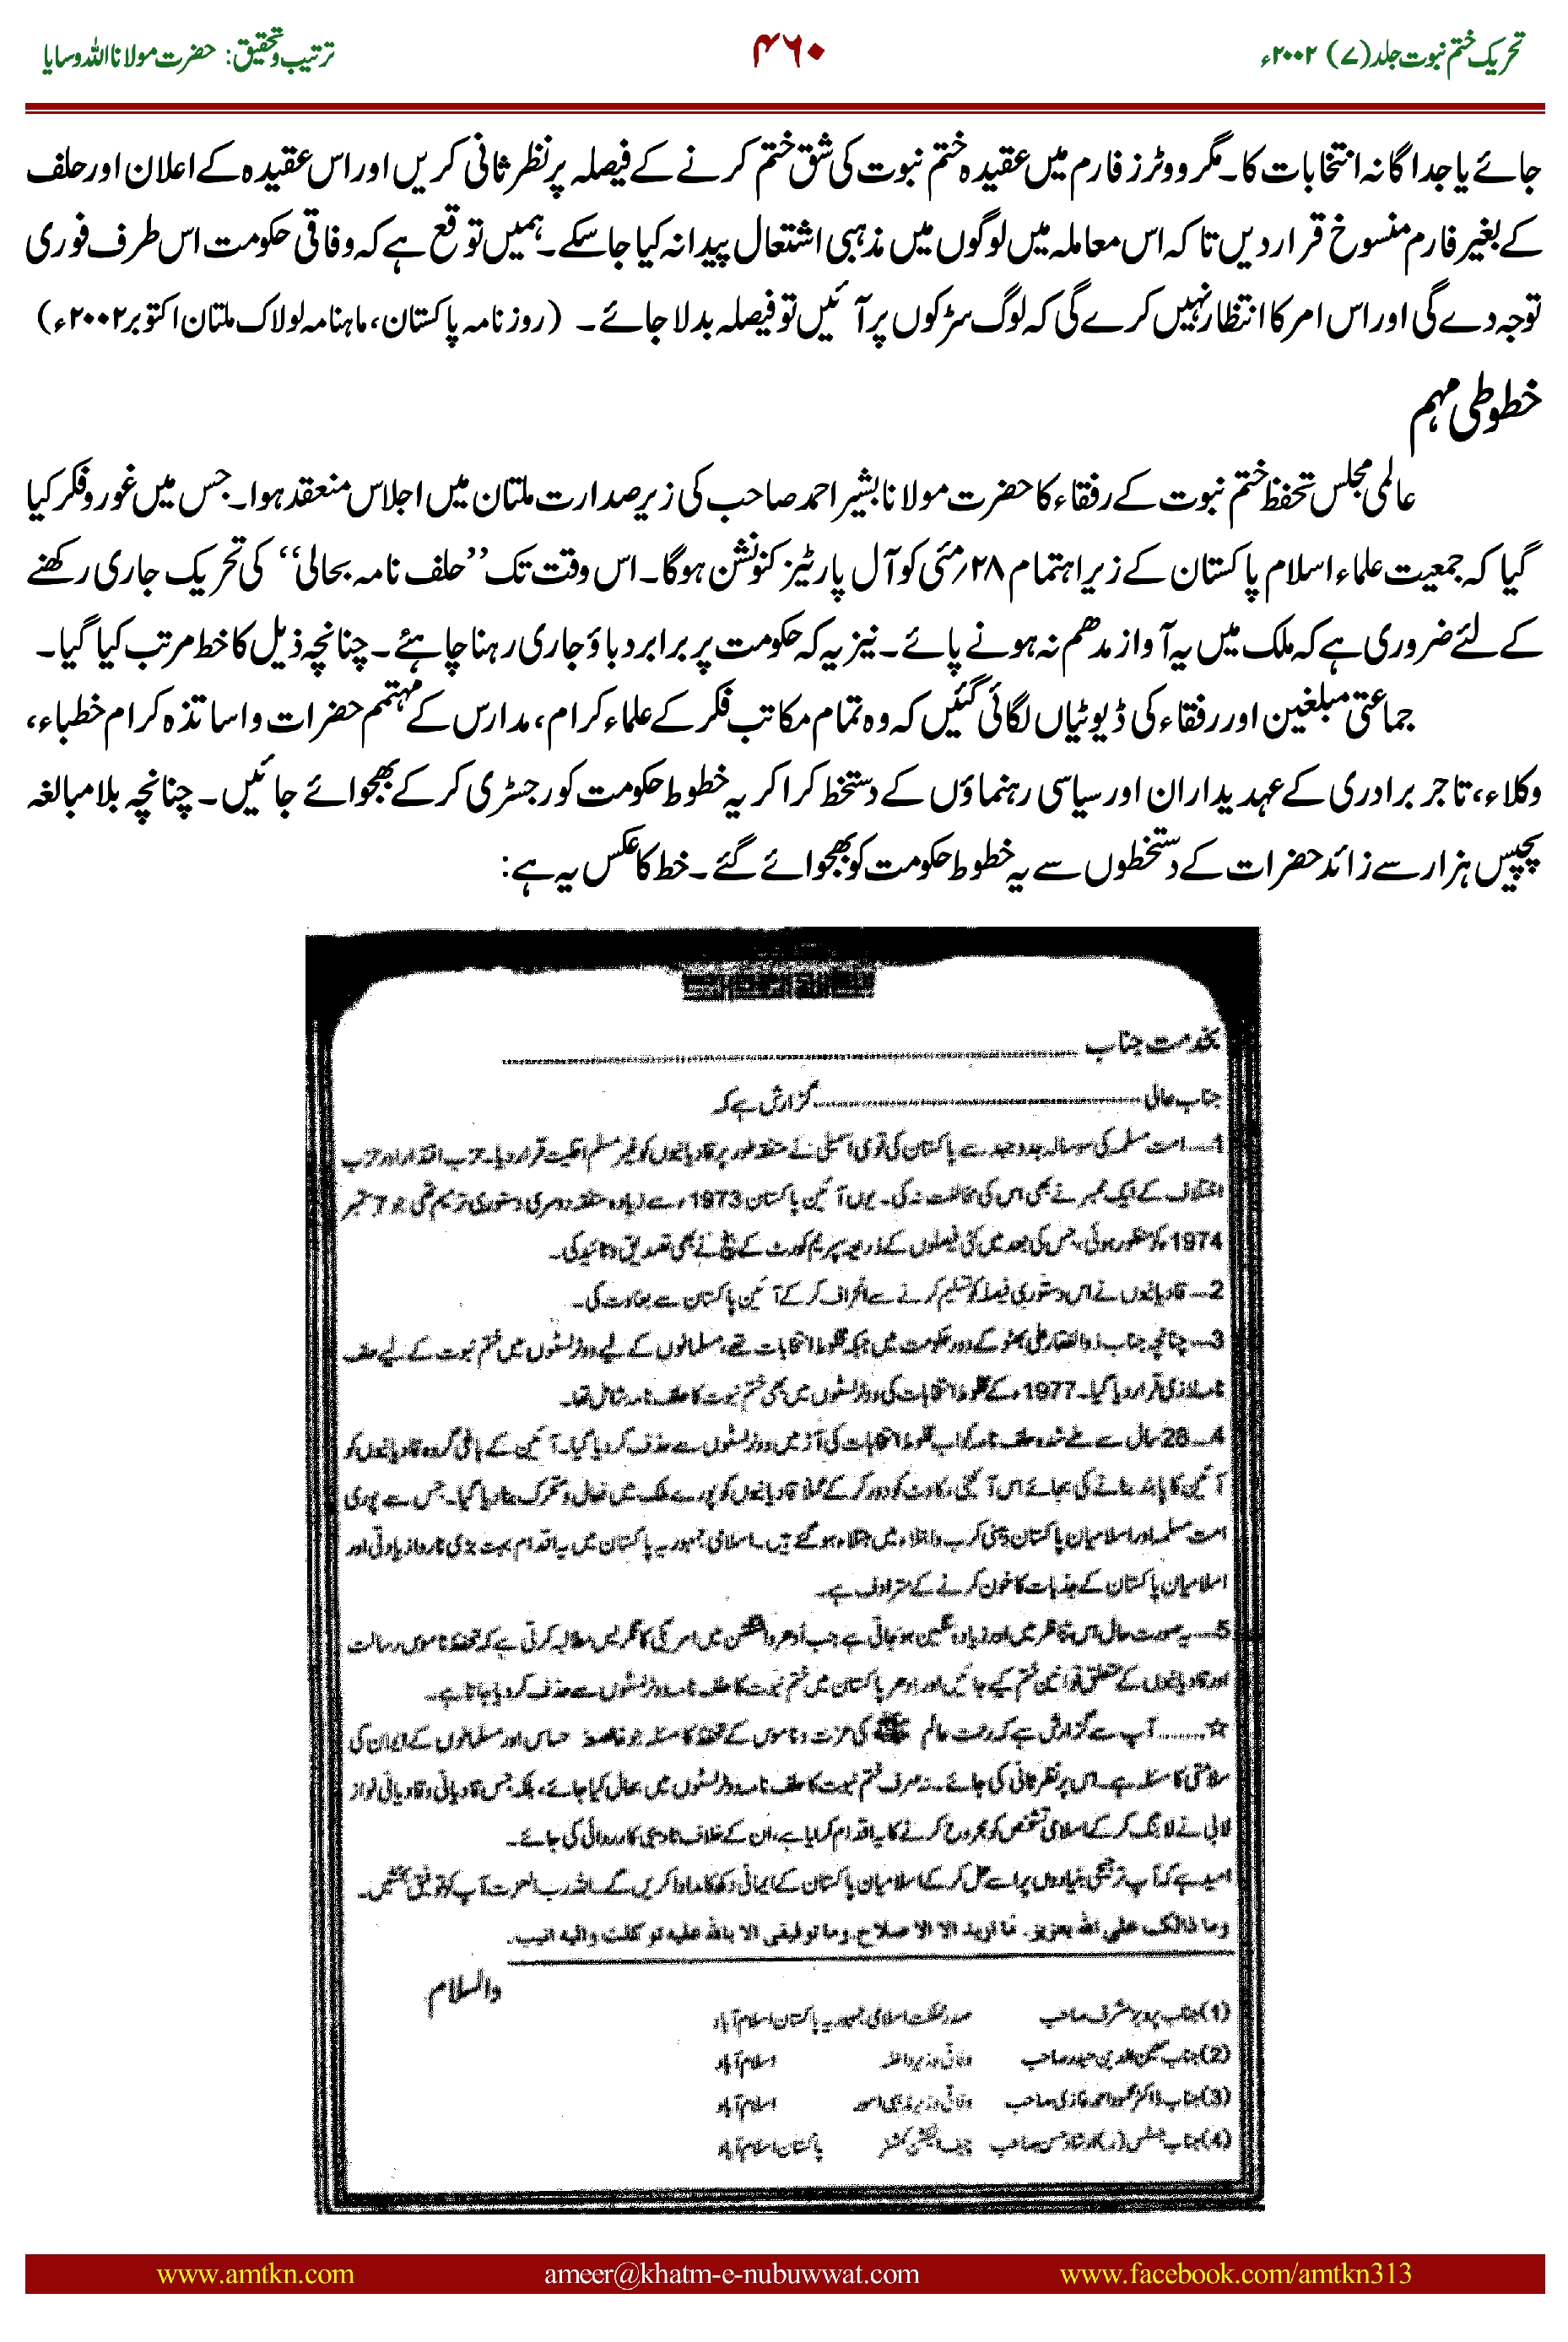 تحریک ختم نبوت جلد(۷) ۲۰۰۲ء
۴۶۰
ترتیب و تحقیق: حضرت مولانا اللہ وسایا
جائے یا جداگانہ انتخابات کا۔ مگر ووٹرز فارم میں عقیدہ ختم نبوت کی شق ختم کرنے کے فیصلہ پر نظر ثانی کریں اور اس عقیدہ کے اعلان اور حلف
کے بغیر فارم منسوخ قرار دیں تاکہ اس معاملہ میں لوگوں میں مذہبی اشتعال پیدا نہ کیا جا سکے۔ ہمیں توقع ہے کہ وفاقی حکومت اس طرف فوری
توجہ دے گی اور اس امر کا انتظار نہیں کرے گی کہ لوگ سڑکوں پر آئیں تو فیصلہ بدلا جائے۔ (روزنامہ پاکستان، ماہنامہ لولاک ملتان اکتوبر ۲۰۰۲ء)
خطوطی مہم
عالمی مجلس تحفظ ختم نبوت کے رفقاء کا حضرت مولانا بشیر احمد صاحب کی زیر صدارت ملتان میں اجلاس منعقد ہوا۔ جس میں غور و فکر کیا
گیا کہ جمعیت علماء اسلام پاکستان کے زیر اہتمام ۲۸؍مئی کو آل پارٹیز کنونشن ہوگا۔ اس وقت تک ’’حلف نامہ بحالی‘‘ کی تحریک جاری رکھنے
کے لئے ضروری ہے کہ ملک میں یہ آواز مدھم نہ ہونے پائے۔ نیز یہ کہ حکومت پر برابر دباؤ جاری رہنا چاہئے۔ چنانچہ ذیل کا خط مرتب کیا گیا۔
جماعتی مبلغین اور رفقاء کی ڈیوٹیاں لگائی گئیں کہ وہ تمام مکاتب فکر کے علماء کرام، مدارس کے مہتمم حضرات و اساتذہ کرام خطباء،
وکلاء، تاجر برادری کے عہدیداران اور سیاسی رہنماؤں کے دستخط کرا کر یہ خطوط حکومت کو رجسٹری کر کے بھجوائے جائیں۔ چنانچہ بلا مبالغہ
پچیس ہزار سے زائد حضرات کے دستخطوں سے یہ خطوط حکومت کو بھجوائے گئے۔ خط کا عکس یہ ہے:
بخدمت جناب
جناب عالی ............ گزارش ہے کہ
1۔۔۔۔امت مسلمہ کی سو سالہ جدوجہد سے پاکستان کی قومی اسمبلی نے متفقہ طور پر قادیانیوں کو غیر مسلم اقلیت قرار دیا۔ حزب اقتدار اور حزب
اختلاف کے ایک ممبر نے بھی اس کی مخالفت نہ کی۔ یوں آئین پاکستان 1973ء سے زیادہ متفقہ دوسری دستوری ترمیم تھی جو 7 ستمبر
1974ء کو منظور ہوئی، جس کی بعد میں کئی فیصلوں کے ذریعہ سپریم کورٹ کے جج نے بھی تصدیق و تائید کی۔
2۔۔قادیانیوں نے اس دستوری فیصلہ کو تسلیم کرنے سے انحراف کر کے آئین پاکستان سے بغاوت کی۔
3۔۔چنانچہ جناب ذوالفقار علی بھٹو کے دور حکومت میں جبکہ مخلوط انتخابات تھے، مسلمانوں کے لیے ووٹر لسٹوں میں ختم نبوت کے لیے حلف
نامہ لازمی قرار دیا گیا۔ 1977ء کے مخلوط انتخابات کی ووٹر لسٹوں میں بھی ختم نبوت کا حلف نامہ شامل تھا۔
4۔۔28 سال سے طے شدہ حلف نامہ کو اب مخلوط انتخابات کی آڑ میں ووٹر لسٹوں سے حذف کر دیا گیا۔ آئین کے باغی گروہ قادیانیوں کو
آئین کا پابند بنانے کی بجائے اس آئینی رکاوٹ کو دور کر کے عملاً قادیانیوں کو پورے ملک میں فعال و متحرک بنا دیا گیا۔ جس سے پوری
امت مسلمہ اور اسلامیان پاکستان ذہنی کرب و ابتلاء میں مبتلاء ہو گئے ہیں۔ اسلامی جمہوریہ پاکستان میں یہ اقدام بہت بڑی ناروا زیادتی اور
اسلامیان پاکستان کے جذبات کا خون کرنے کے مترادف ہے۔
5۔۔۔یہ صورت حال اس تناظر میں اور زیادہ سنگین ہو جاتی ہے جب ادھر واشنگٹن میں امریکی کانگریس مطالبہ کرتی ہے کہ تحفظ ناموس رسالت
اور قادیانیوں کے متعلق قوانین ختم کیے جائیں اور ادھر پاکستان میں ختم نبوت کا حلف نامہ ووٹر لسٹوں سے حذف کر دیا جاتا ہے۔
☆.......آپ سے گزارش ہے کہ رحمت عالم ﷺ کی عزت و ناموس کے تحفظ کا مسئلہ جو خالصۃً حساس اور مسلمانوں کے ایمان کی
سلامتی کا مسئلہ ہے۔ اس پر نظر ثانی کی جائے۔ نہ صرف ختم نبوت کا حلف نامہ ووٹر لسٹوں میں بحال کیا جائے، بلکہ جس قادیانی و قادیانی نواز
لابی نے لابنگ کر کے اسلامی تشخص کو مجروح کرنے کا یہ اقدام کرایا ہے، ان کے خلاف تادیبی کارروائی کی جائے۔
امید ہے کہ آپ ترجیحی بنیادوں پر اسے حل کر کے اسلامیان پاکستان کے ایمانی دکھ کا مداوا کریں گے۔ اللہ رب العزت آپ کو توفیق بخشیں۔
وما ذالک علی اللہ بعزیز۔ ما ارید الا الاصلاح۔ وما توفیقی الا باللہ علیہ توکلت والیہ انیب۔
والسلام
(1)جناب پرویز مشرف صاحب صدر مملکت اسلامی جمہوریہ پاکستان اسلام آباد
(2)جناب معین الدین حیدر صاحب وفاقی وزیر داخلہ اسلام آباد
(3)جناب ڈاکٹر محمود احمد غازی صاحب وفاقی وزیر مذہبی امور اسلام آباد
(4)جناب جسٹس (ر) ارشاد حسن صاحب چیف الیکشن کمشنر پاکستان اسلام آباد
www.amtkn.com
ameer@khatm-e-nubuwwat.com
www.facebook.com/amtkn313